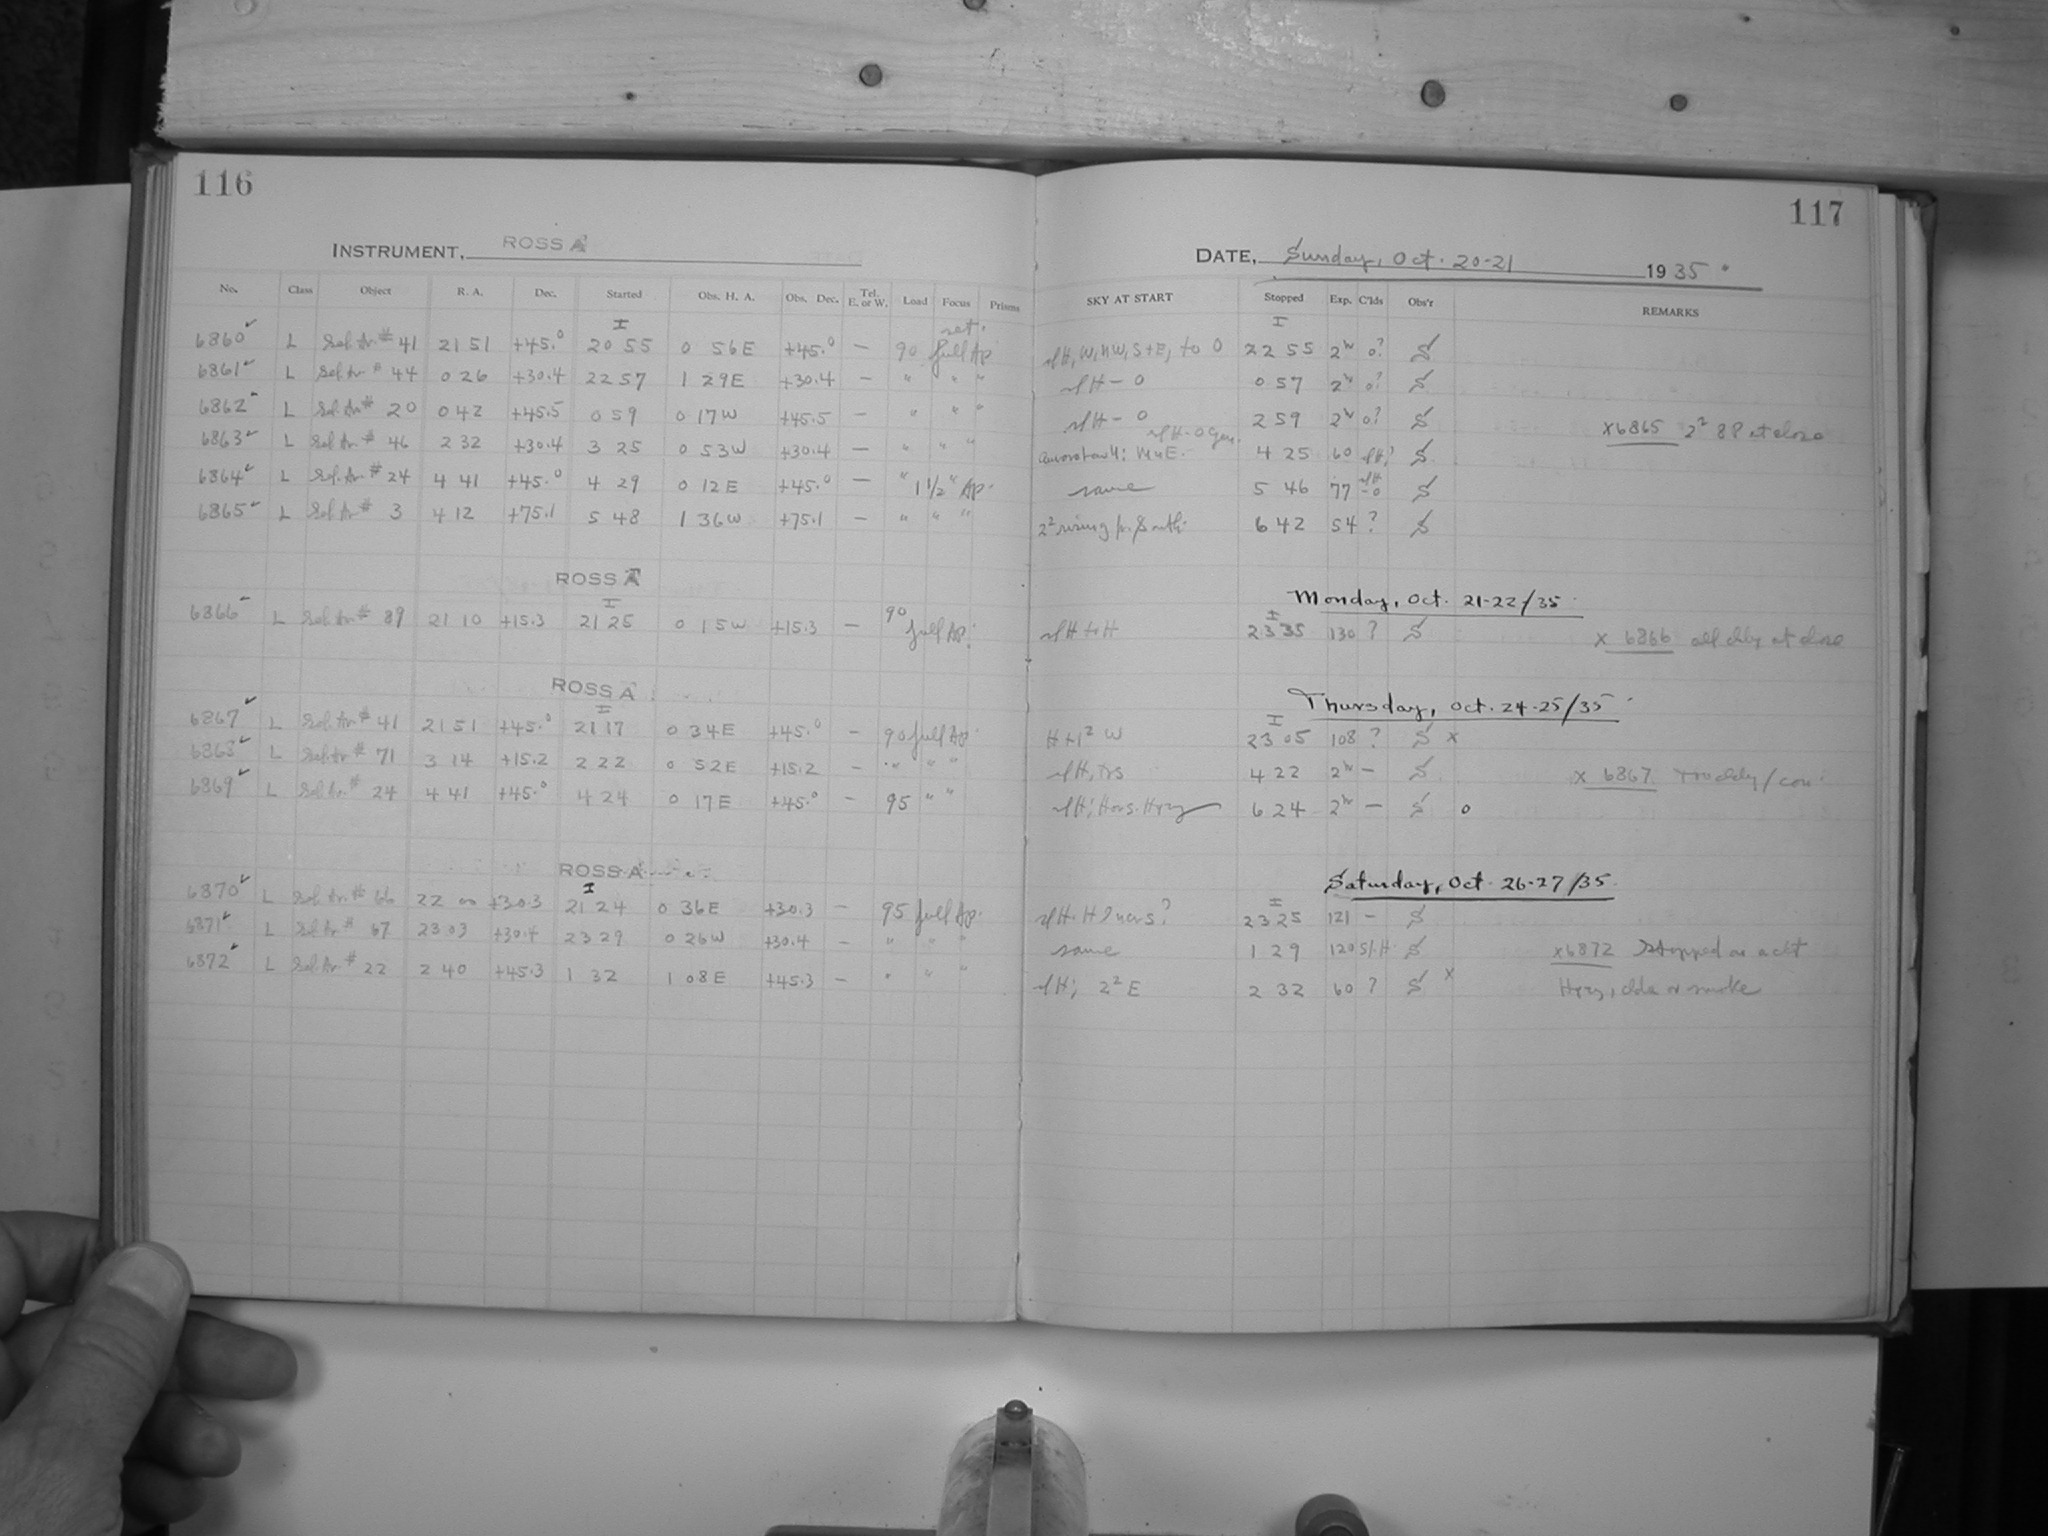 116
117
INSTRUMENT, ROSS A
DATE, Sunday, Oct. 20-21 1935
No. Class Object R. A. Dec. Started Obs. H. A. Obs. Dec. Tel. E. or W. Load Focus Prisms SKY AT START Stopped Exp. C'lds Obs'r REMARKS
I set. I
6860 L Sel. Ar. # 41 21 51 +45.0 20 55 0 56 E +45.0 — 90 full Ap. W, NW, S + E, to 0 22 55 2h 0? S
6861 L Sel. Ar # 44 0 26 +30.4 22 57 1 29 E +30.4 — " " " — 0 0 57 2h 0? S
6862 L Sel. Ar # 20 0 42 +45.5 0 59 0 17 W +45.5 — " " " — 0 2 59 2h 0? S x6865 2² at close
6863 L Sel. Ar. # 46 2 32 +30.4 3 25 0 53 W +30.4 — " " " 4 25 60 S
6864 L Sel. Ar. # 24 4 41 +45.0 4 29 0 12 E +45.0 — " 1 1/2" Ap. same 5 46 77 S
6865 L Sel Ar # 3 4 12 +75.1 5 48 1 36 W +75.1 — " " " 2² rising 6 42 54 ? S
ROSS A
Monday, Oct. 21-22/35
I I
6866 L Sel. Ar # 89 21 10 +15.3 21 25 0 15 W +15.3 — 90 full Ap. 23 35 130 ? S x 6866 all cldy at close
ROSS A
Thursday, Oct. 24-25/35
I I
6867 L Sel. Ar # 41 21 51 +45.0 21 17 0 34 E +45.0 — 90 full Ap. H + 1² W 23 05 108 ? S x
6868 L Sel. Ar # 71 3 14 +15.2 2 22 0 52 E +15.2 — " " " 4 22 2h — S x 6867 Too cldy/
6869 L Sel. Ar. # 24 4 41 +45.0 4 24 0 17 E +45.0 — 95 " " 6 24 2h — S o
ROSS A
Saturday, Oct. 26-27/35
I I
6870 L Sel. Ar. # 66 22 00 +30.3 21 24 0 36 E +30.3 — 95 full Ap. 23 25 121 — S
6871 L Sel. Ar # 67 23 03 +30.4 23 29 0 26 W +30.4 — " " " same 1 29 120 S x6872 Stopped on acct
6872 L Sel. Ar. # 22 2 40 +45.3 1 32 1 08 E +45.3 — " " " 2² E 2 32 60 ? S x Hzy, clds or smoke